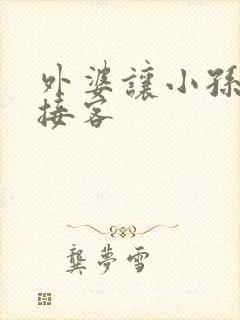 外婆讓小孫
接客
龔夢雪